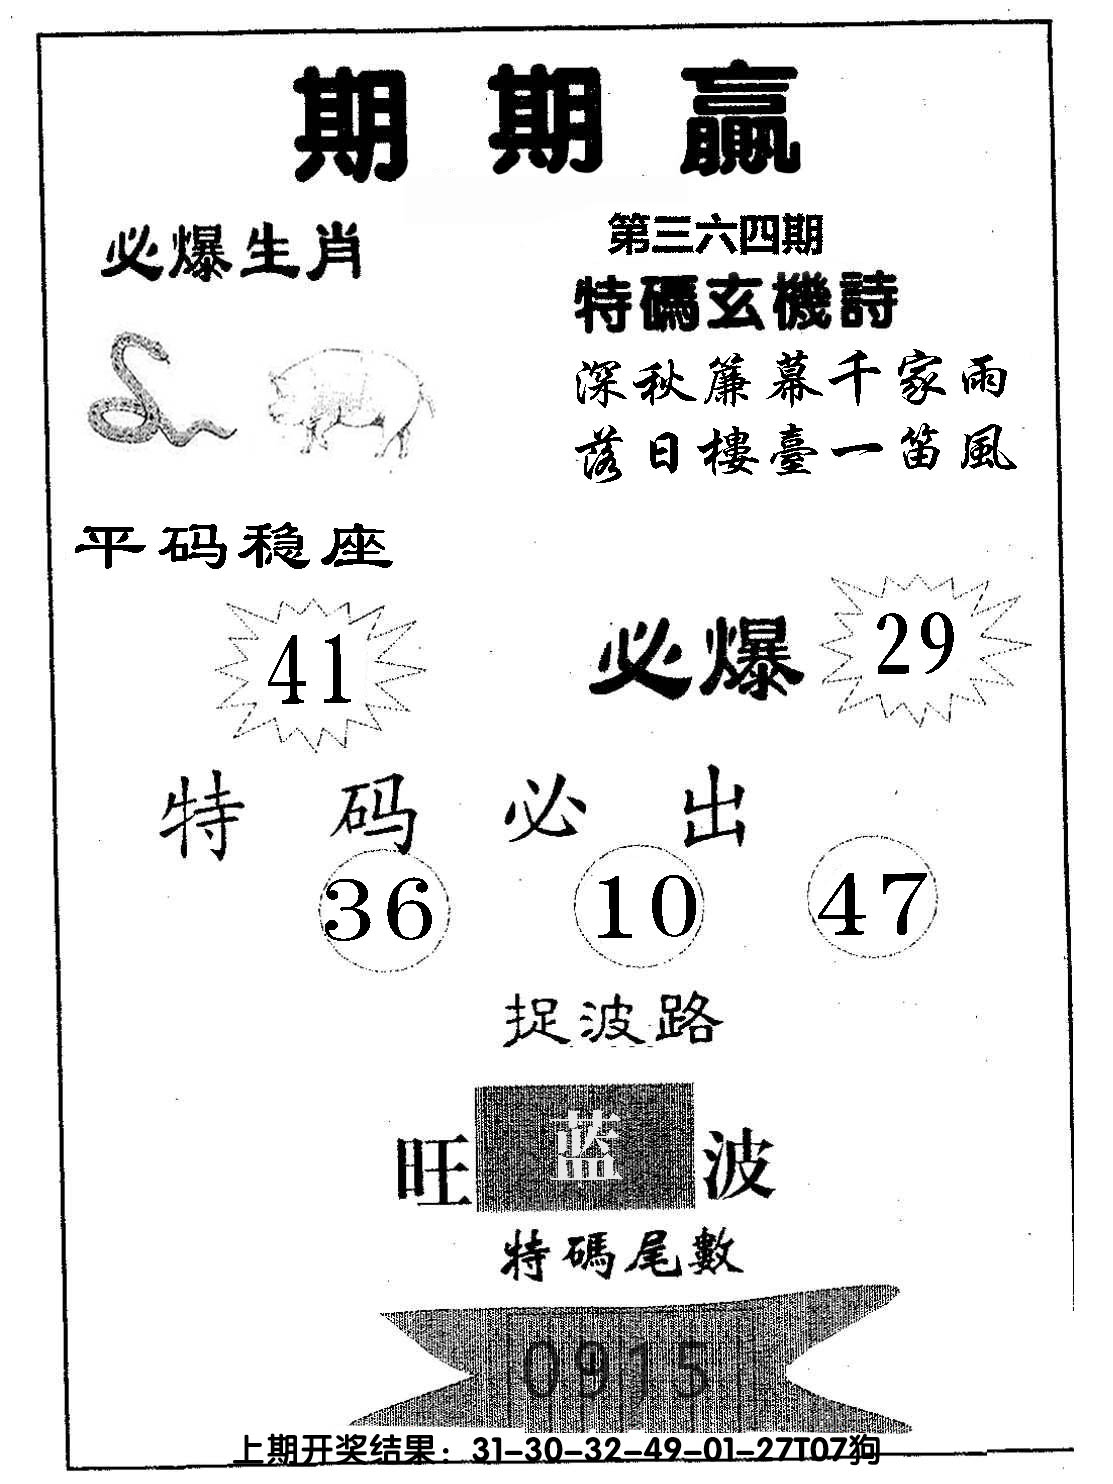 期期赢
必爆生肖
第三六四期
特碼玄機詩
深秋簾幕千家雨
落日樓臺一笛風
平码稳座
41
必爆 29
特码必出
36 10 47
捉波路
旺蓝波
特碼尾數
0915
上期开奖结果：31-30-32-49-01-27T07狗